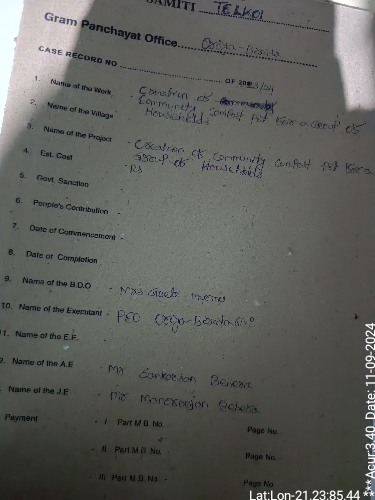 SAMITI TELKOI
Gram Panchayat Office
CASE RECORD NO OF 2023/24
1. Name of the Work - Creation of Community Compost Pit for a Group of
2. Name of the Village Households
3. Name of the Project - Creation of Community Compost Pit for a
4. Est. Cost Group of Households
Rs
5. Govt. Sanction -
6. People's Contribution -
7. Date of Commencement -
8. Date of Completion
9. Name of the B.D.O -
10. Name of the Executant - PEO
11. Name of the E.E.
2. Name of the A.E - Mr Sankarsan Behera
Name of the J.E - Mr Manoranjan Behera
Payment - I Part M B. No. Page No.
- II Part M.B. No. - Page No. -
- III Part M.B. No. - Page No.
Lat:Lon-21.23:85.44 *** Acur:3.40 Date: 11-09-2024